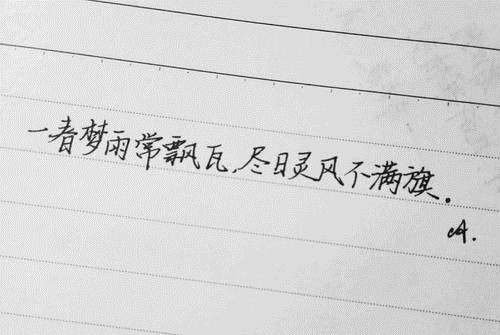 一春梦雨常飘瓦,尽日灵风不满旗.
cA.